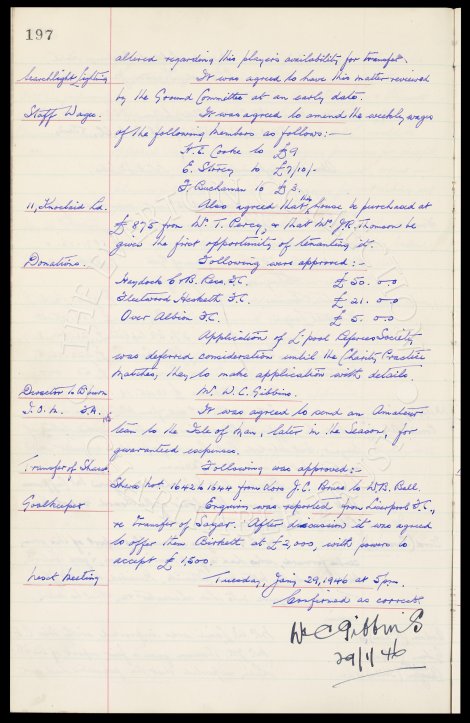 197
altered regarding this player's availability for transfer.
Searchlight Lighting It was agreed to have this matter reviewed
by the Ground Committee at an early date.
Staff Wages. It was agreed to amend the weekly wages
of the following members as follows:-
H.E. Cooke to £9
E. Storey to £7/10/-
F. Buchanan to £3.
11, Knoclaid Rd. Also agreed that the house be purchased at
£875 from Mr. T. Percy, & that Mr. J.R. Thomson be
given the first opportunity of tenanting it.
Donations. Following were approved:-
Haydock C & B. Recs. F.C. £50. 0-0
Fleetwood Hesketh F.C. £21. 0-0
Over Albion F.C. £5. 0-0
Application of L'pool Referees Society
was deferred consideration until the Charity Practice
Matches, they to make application with details.
Director to B'ham Mr. W.C. Gibbins.
I.O.M. F.A. It was agreed to send an Amateur
team to the Isle of Man, later in the Season, for
guaranteed expenses.
Transfer of Shares Following was approved:-
Share Nos. 1642 to 1644 from J.C. to W.B. Bell.
Goalkeeper Enquiry was reported from Liverpool F.C.,
re transfer of Sagar. After discussion it was agreed
to offer them Birkett at £2,000, with powers to
accept £1,500.
Next Meeting Tuesday, Jany 29, 1946 at 5pm.
Confirmed as correct.
W C Gibbins
29/1/46